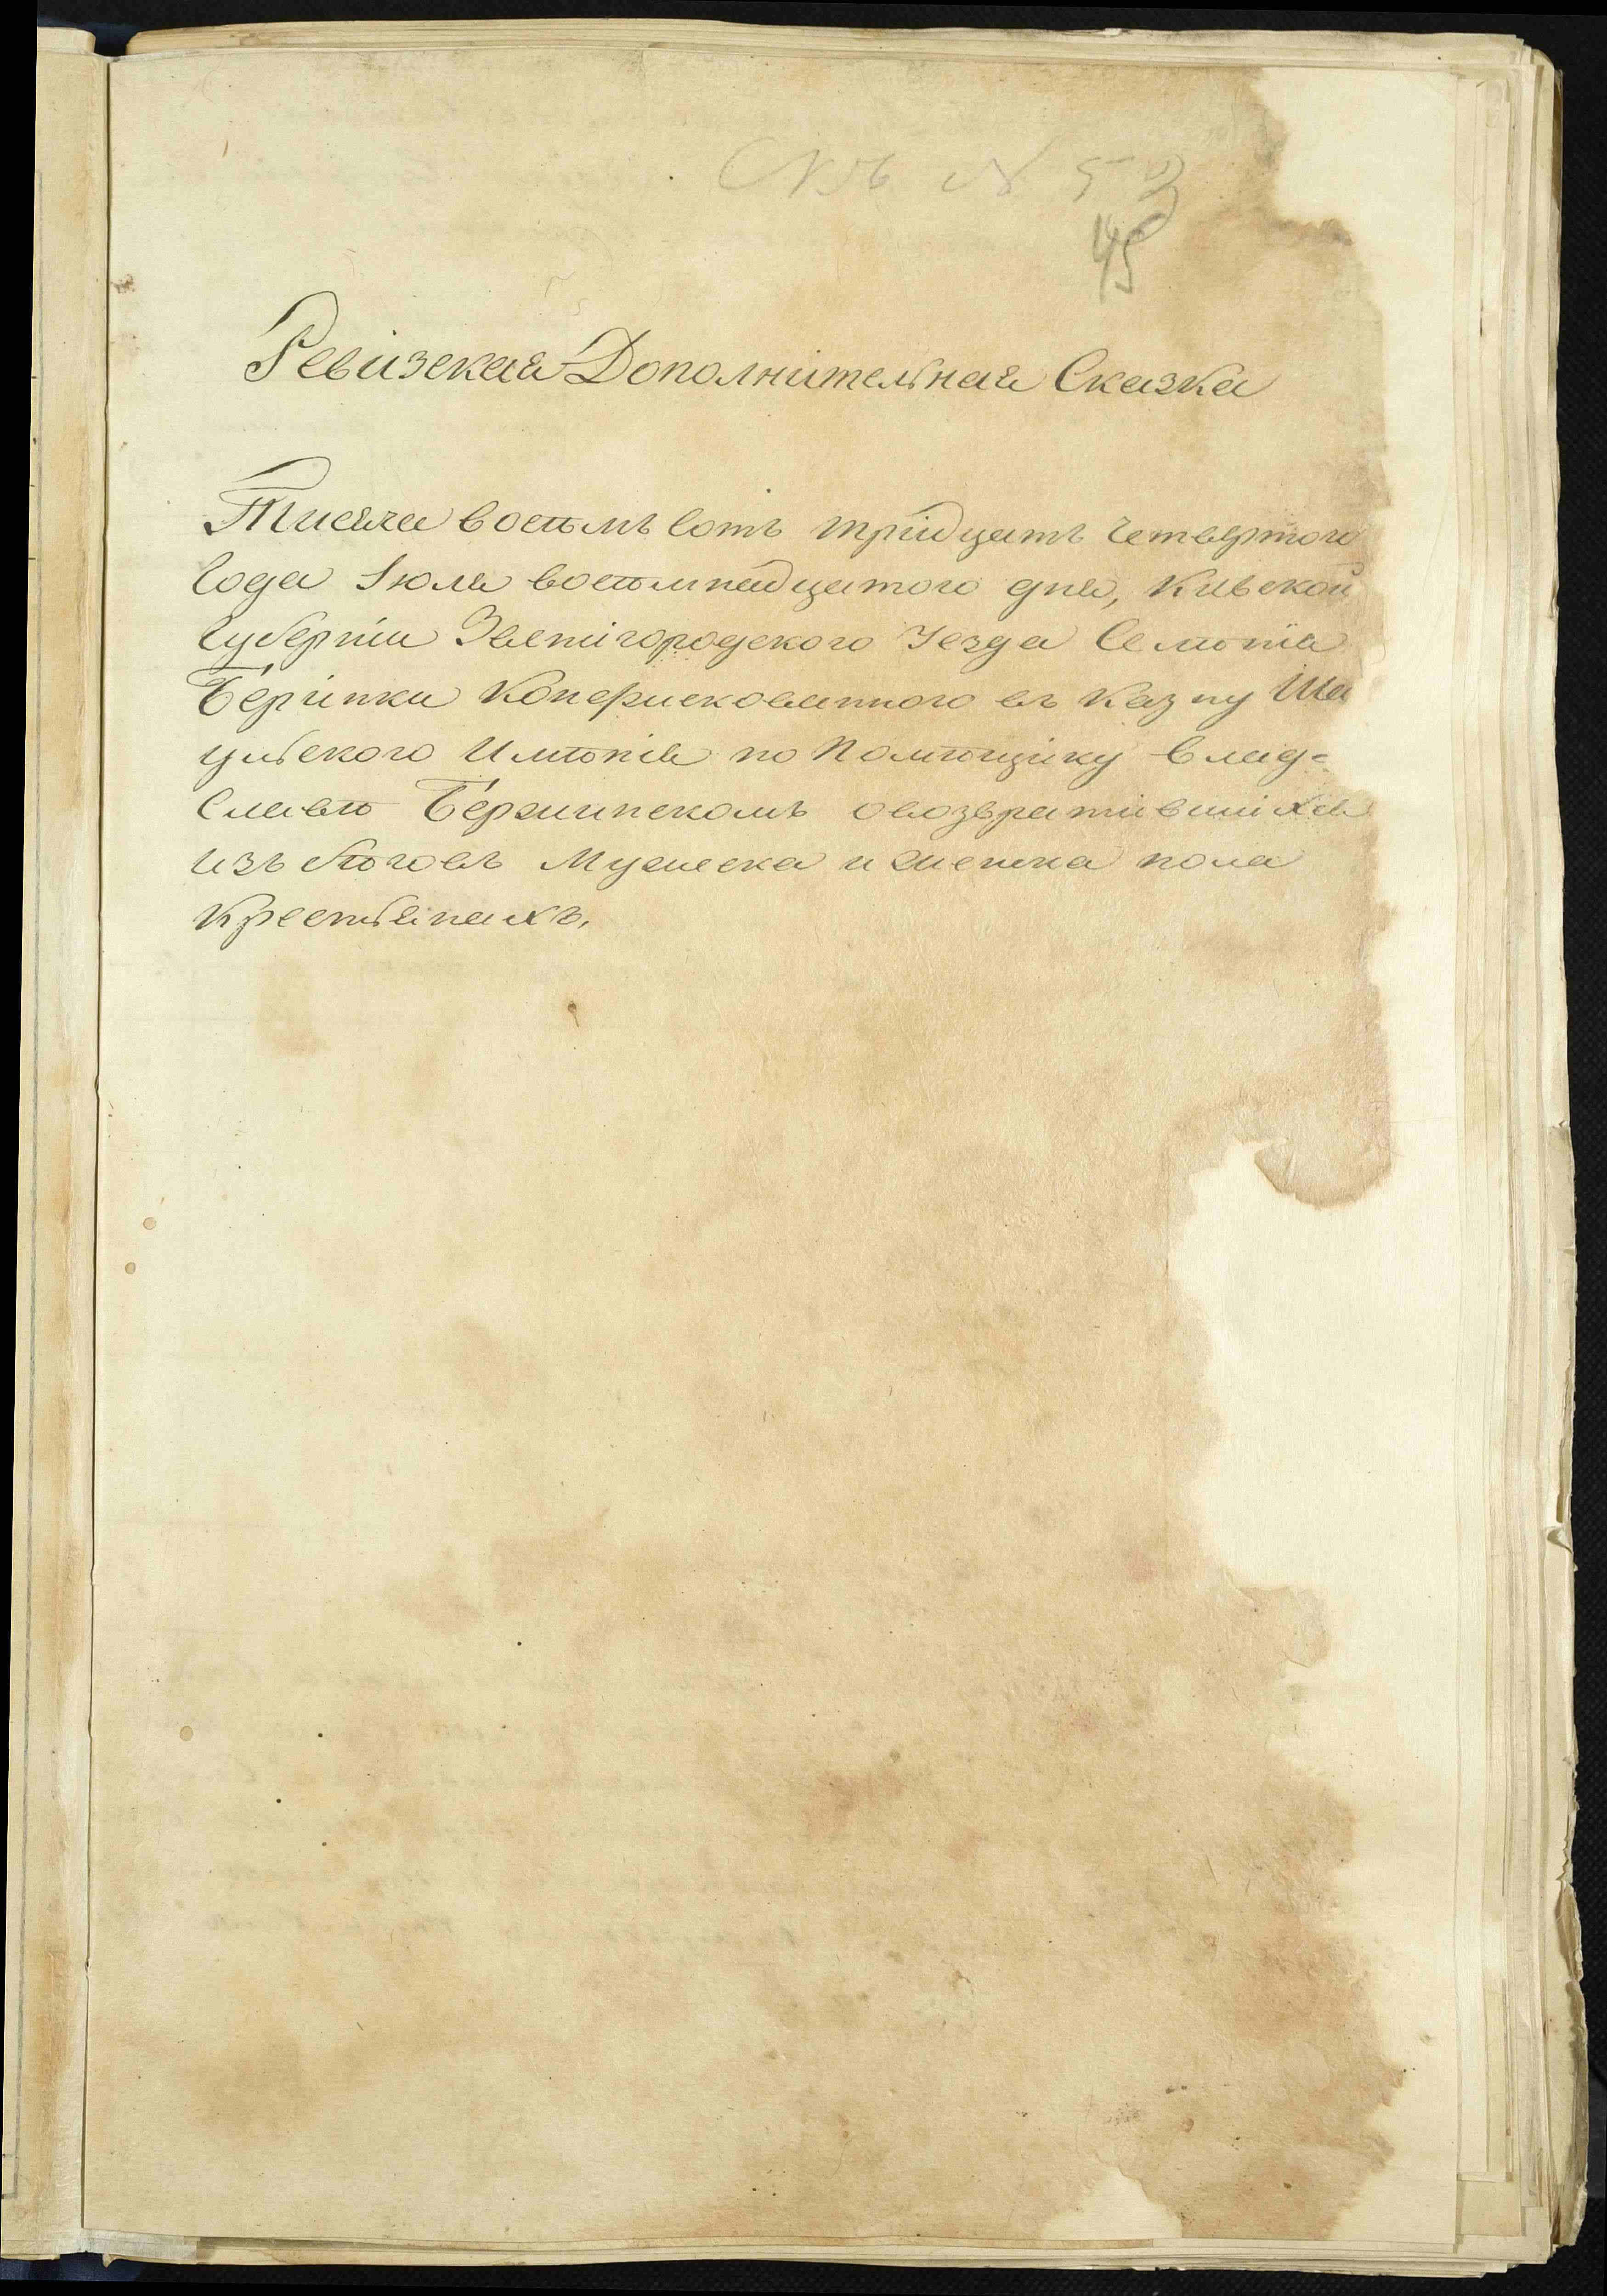 45
Ревизская Дополнительная Сказка
Тисяча восѣмъ сотъ тридцатъ четвертого
Года Іюля восѣмнадцатого дня, Киевской
Губерніи Звенигородского Уезда Семѣнія
Беринки Конфискованного въ Казну Ша
цъского Имѣнія по Помѣщику Влад=
славѣ Бержинскомъ овозвратившихся
изъ бѣговъ Мужеска и женска пола
Крестьянахъ.